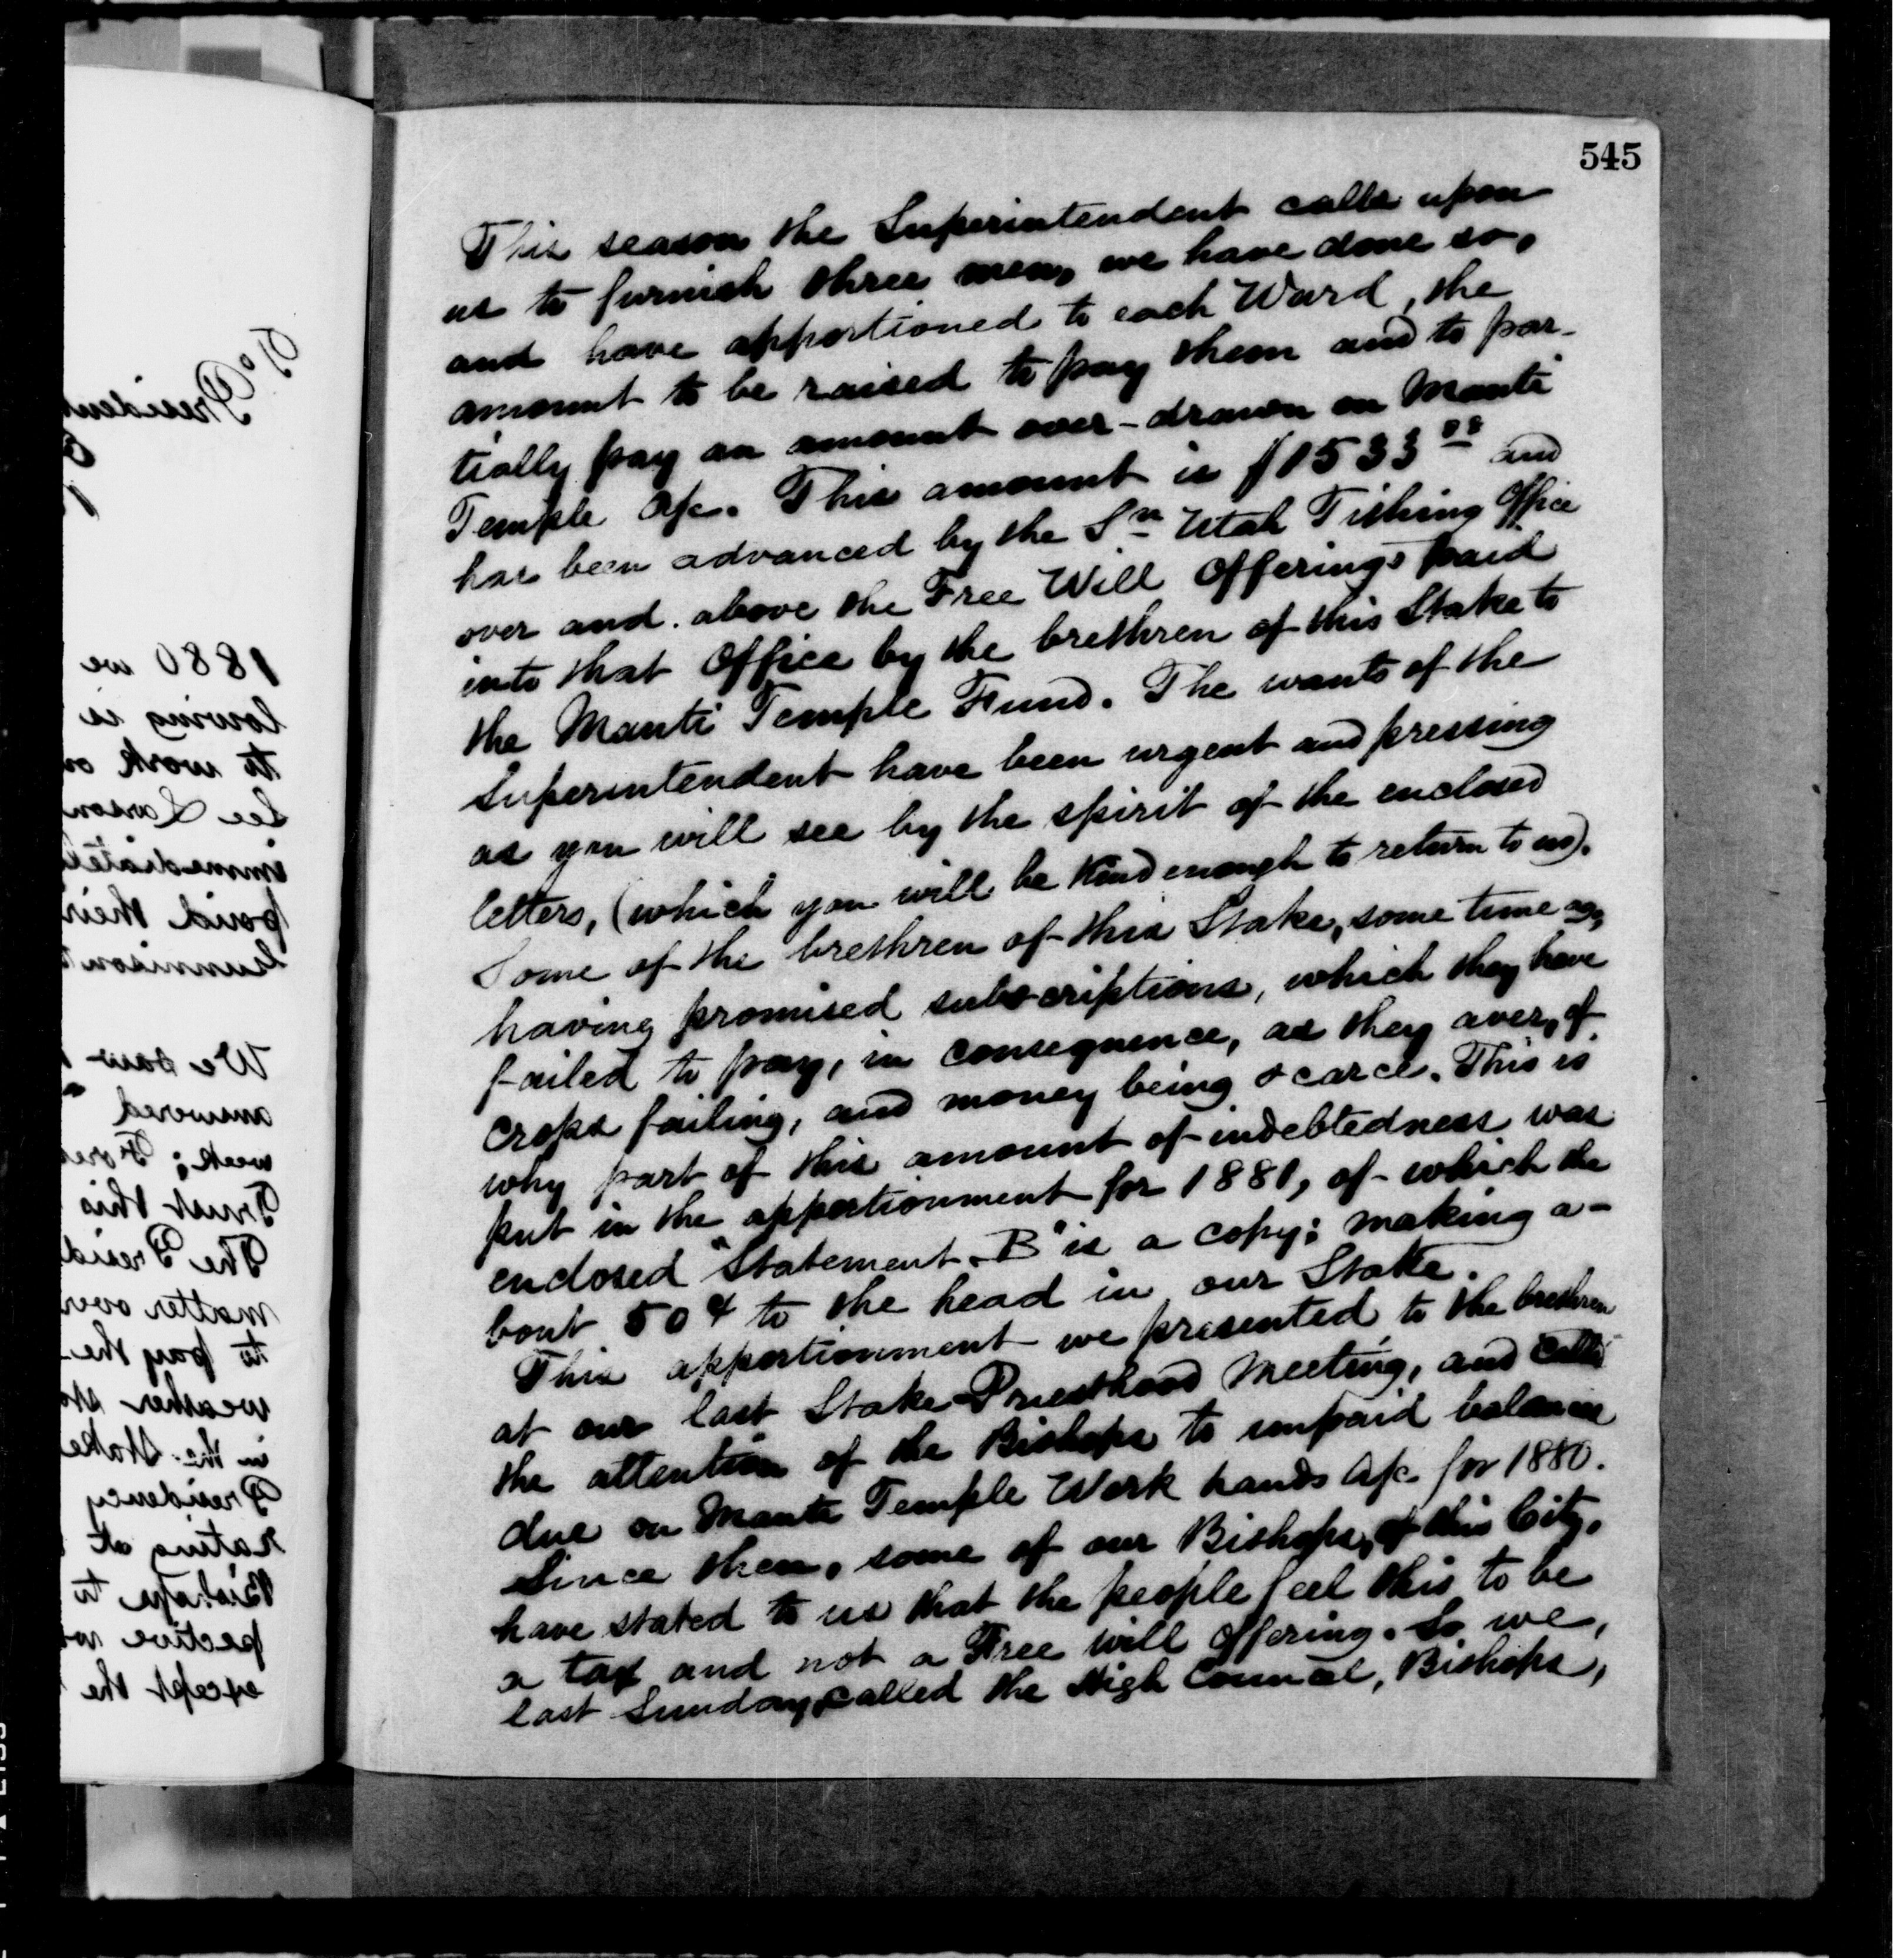 545
This season the Superintendent calls upon
us to furnish three men, we have done so,
and have apportioned to each Ward, the
amount to be raised to pay them and to par-
tially pay an amount over-drawn on Manti
Temple a/c. This amount is $1533 and
has been advanced by the Sn Utah Tithing Office
over and above the Free Will Offerings paid
into that Office by the brethren of this Stake to
the Manti Temple Fund. The wants of the
Superintendent have been urgent and pressing
as you will see by the spirit of the enclosed
letters, (which you will be Kind enough to return to us).
Some of the brethren of this Stake, some time ago,
having promised subscriptions, which they have
failed to pay, in consequence, as they aver, of
crops failing, and money being scarce. This is
why part of this amount of indebtedness was
put in the apportionment for 1881, of which the
enclosed "Statement B" is a copy; making a-
bout 50¢ to the head in our Stake.
This apportionment we presented to the brethren
at our last Stake Priesthood Meeting, and called
the attention of the Bishops to unpaid balances
due on Manti Temple Work hands a/c for 1880.
Since then, some of our Bishops, of this City,
have stated to us that the people feel this to be
a tax and not a Free will offering. So we,
last Sunday, called the High Council, Bishops,
1880 we
lowing is
to work
See
paid their
We saw
answered
week;
Trust this
The
matter over
to pay the
weather
in the Stake
Presidency
rating at
Bishops to
pective
except the